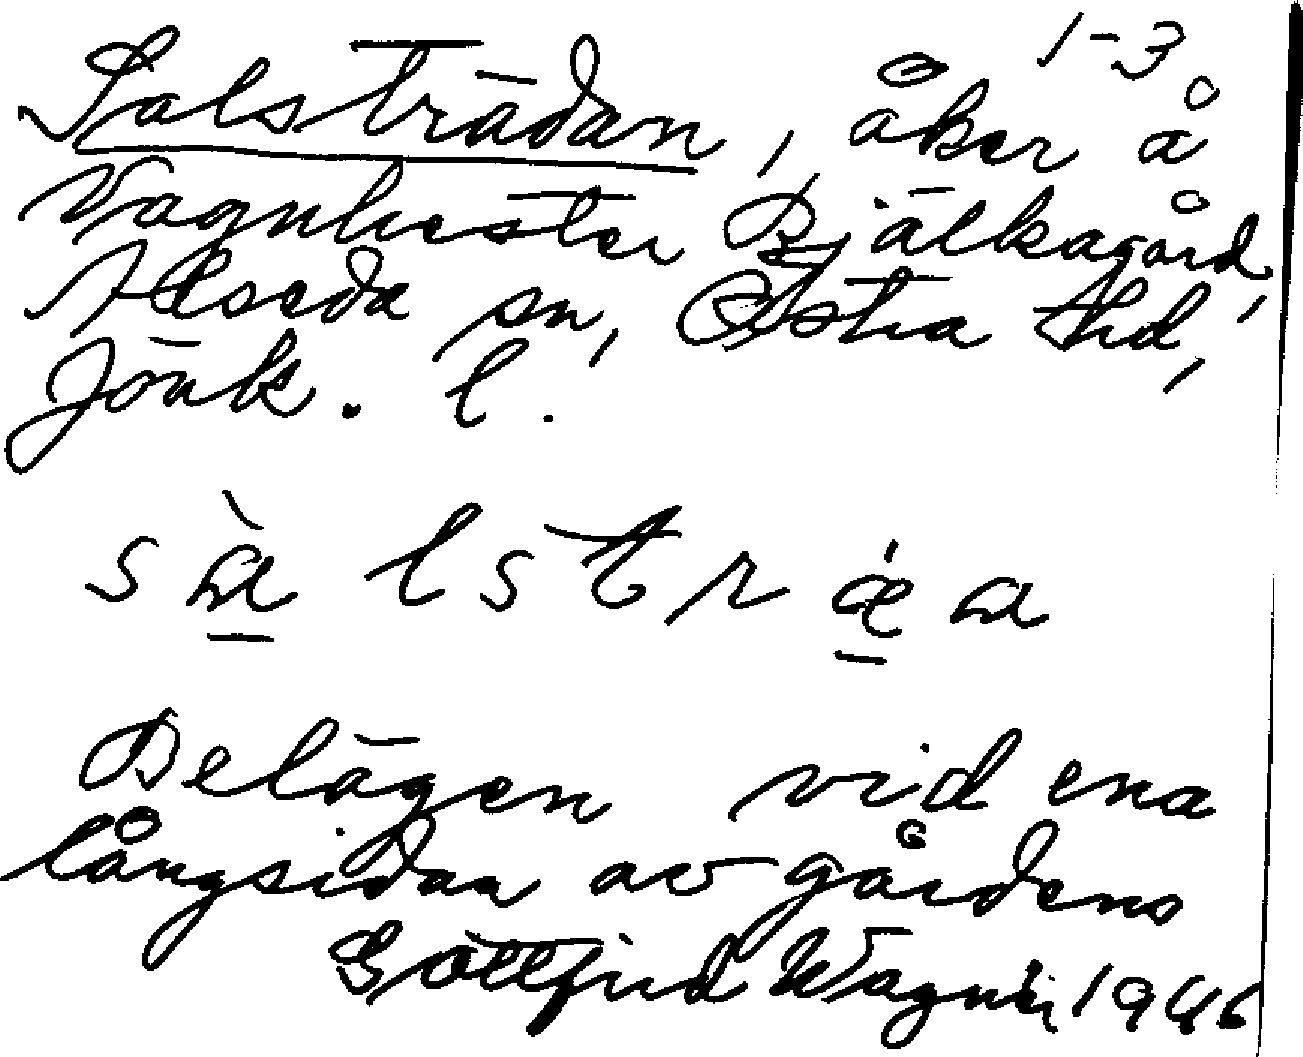 1-3
Salsträdan, åker å
Vagnhester Bjälkagård,
Alseda sn, Östra hd,
Jönk. l.
sàlstrǽa
Belägen vid ena
långsidan av gårdens
Gottfrid Wagnér 1946